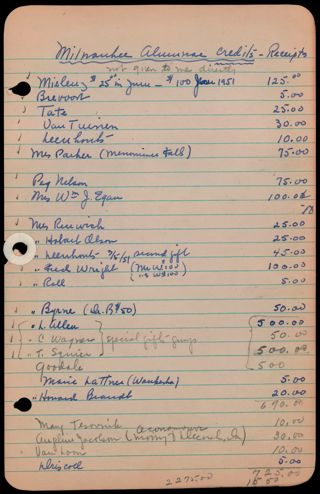 Milwaukee Alumnae credits - Receipts
not given to me directly
Mielenz $25 in June - $100 June 1951 125.00
Brevoort 5.00
Tate 25.00
Van Turinen 30.00
Leenhouts 10.00
Mrs Parker (Menominee Falls) 75.00
Peg Nelson 75.00
Mrs Wm J. Egan 100.00
Mrs Renwick 25.00
" Hobart Olson 25.00
" Leenhouts 3/5/51 second gift 45.00
" Fred Wright 100.00
" Roll 5.00
" Byrne 50.00
" L. Allen 500.00
" C. Wagner special gifts group 50.00
" T. Squier 500.00
Goodale 500
Marie Lattner (Waukesha) 5.00
" Howard Brandt 20.00
670.00
Mary Tesovnik 10.00
30.00
Van Loon 10.00
Driscoll 5.00
725.00
2275.00